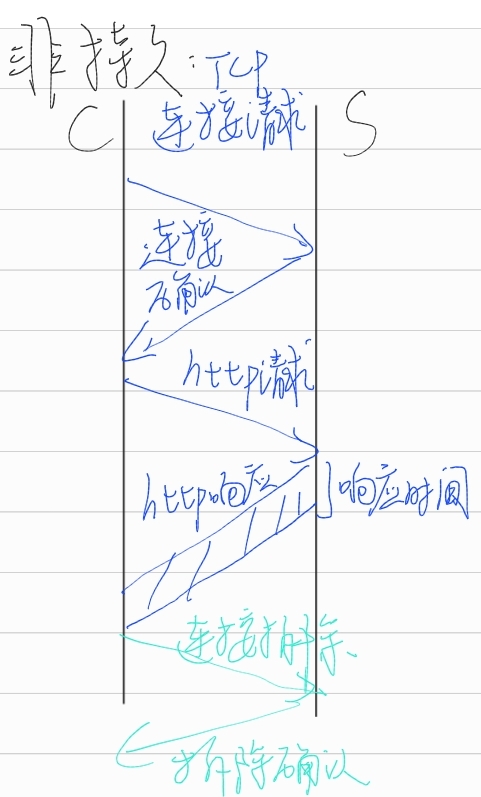 非持久:TCP
C 连接请求 S
连接
确认
http请求
http响应
响应时间
连接拆除
拆除确认